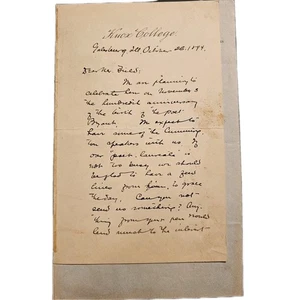 Knox College
Galesburg Ill October 22. 1894.
Dear Mr. Field:
I'm planning to
celebrate here on November 3
the hundredth anniversary
of the birth of the poet
Bryant. I'm expect to
have some of the Cummington
speakers with us. If
our "poet laureate" is
not too busy we should
be glad to have a few
lines from him, to grace
the day. Can you not
send us something? Any-
thing from your pen would
lend much to the interest